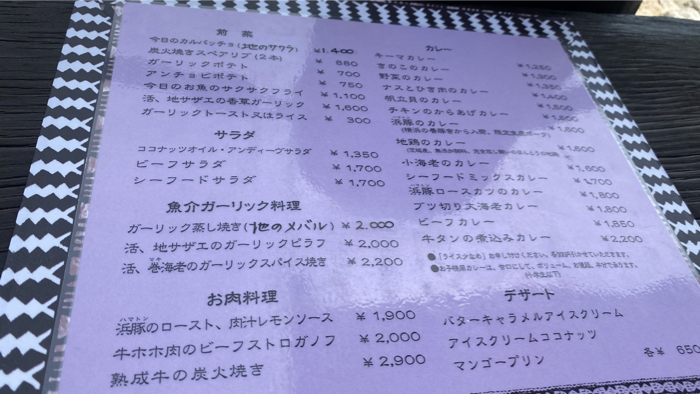 前菜
今日のカルパッチョ(地のサワラ) ¥1,400
炭火焼きスペアリブ(2本) ¥ 880
ガーリックポテト ¥ 700
アンチョビポテト ¥ 750
今日のお魚のサクサクフライ ¥1,100
活、地サザエの香草ガーリック ¥1,600
ガーリックトースト又はライス ¥ 300
サラダ
ココナッツオイル・アンディーブサラダ ¥1,350
ビーフサラダ ¥1,700
シーフードサラダ ¥1,700
魚介ガーリック料理
ガーリック蒸し焼き(地のメバル) ¥2,000
活、地サザエのガーリックピラフ ¥2,000
活、巻海老のガーリックスパイス焼き ¥2,200
お肉料理
ハマトン
浜豚のロースト、肉汁レモンソース ¥1,900
牛ホホ肉のビーフストロガノフ ¥2,000
熟成牛の炭火焼き ¥2,900
カレー
キーマカレー ¥1,250
きのこのカレー ¥1,300
野菜のカレー ¥1,350
ナスとひき肉のカレー ¥1,400
帆立貝のカレー ¥1,500
チキンのからあげカレー ¥1,500
浜豚のカレー ¥1,600
地鶏のカレー ¥1,600
小海老のカレー ¥1,600
シーフードミックスカレー ¥1,700
浜豚ロースカツのカレー ¥1,800
ブツ切り大海老カレー ¥1,800
ビーフカレー ¥1,850
牛タンの煮込みカレー ¥2,200
●「ライス少なめ」お申し付けください。
●お子様用カレーは、甘口にして、ボリューム、お値段、半分で承ります。
(小学生以下)
デザート
バターキャラメルアイスクリーム
アイスクリームココナッツ
マンゴープリン 各¥ 650